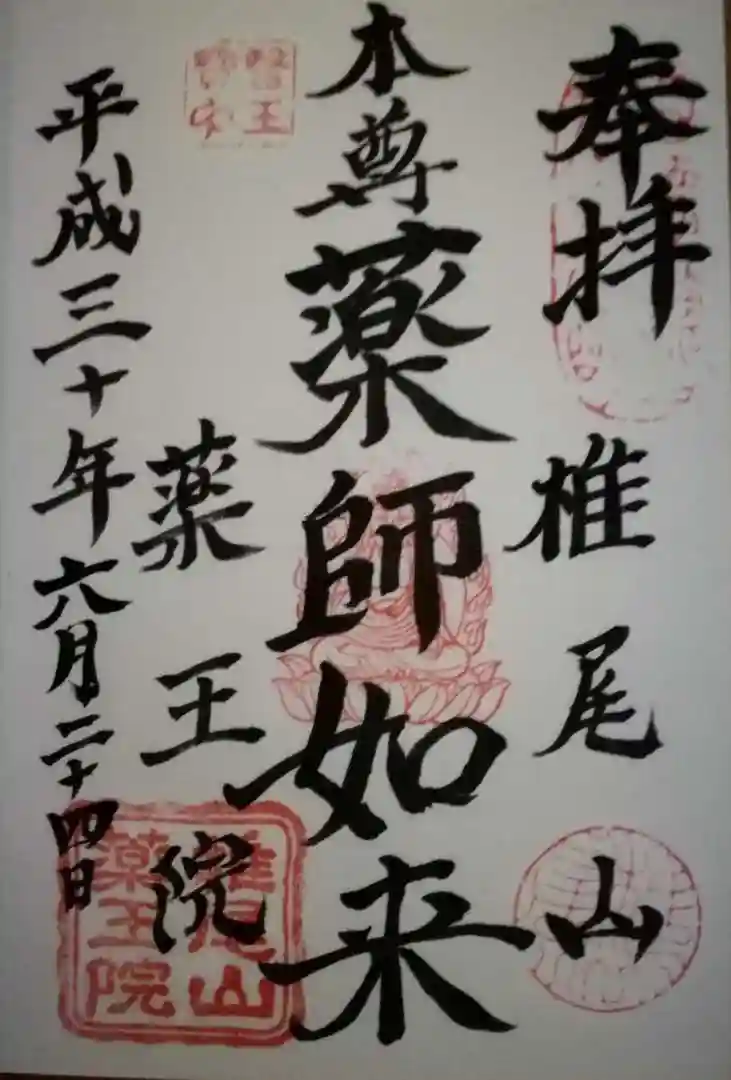 奉拝
椎尾山
本尊薬師如来
薬王院
平成三十年六月二十四日
椎尾山
薬王院